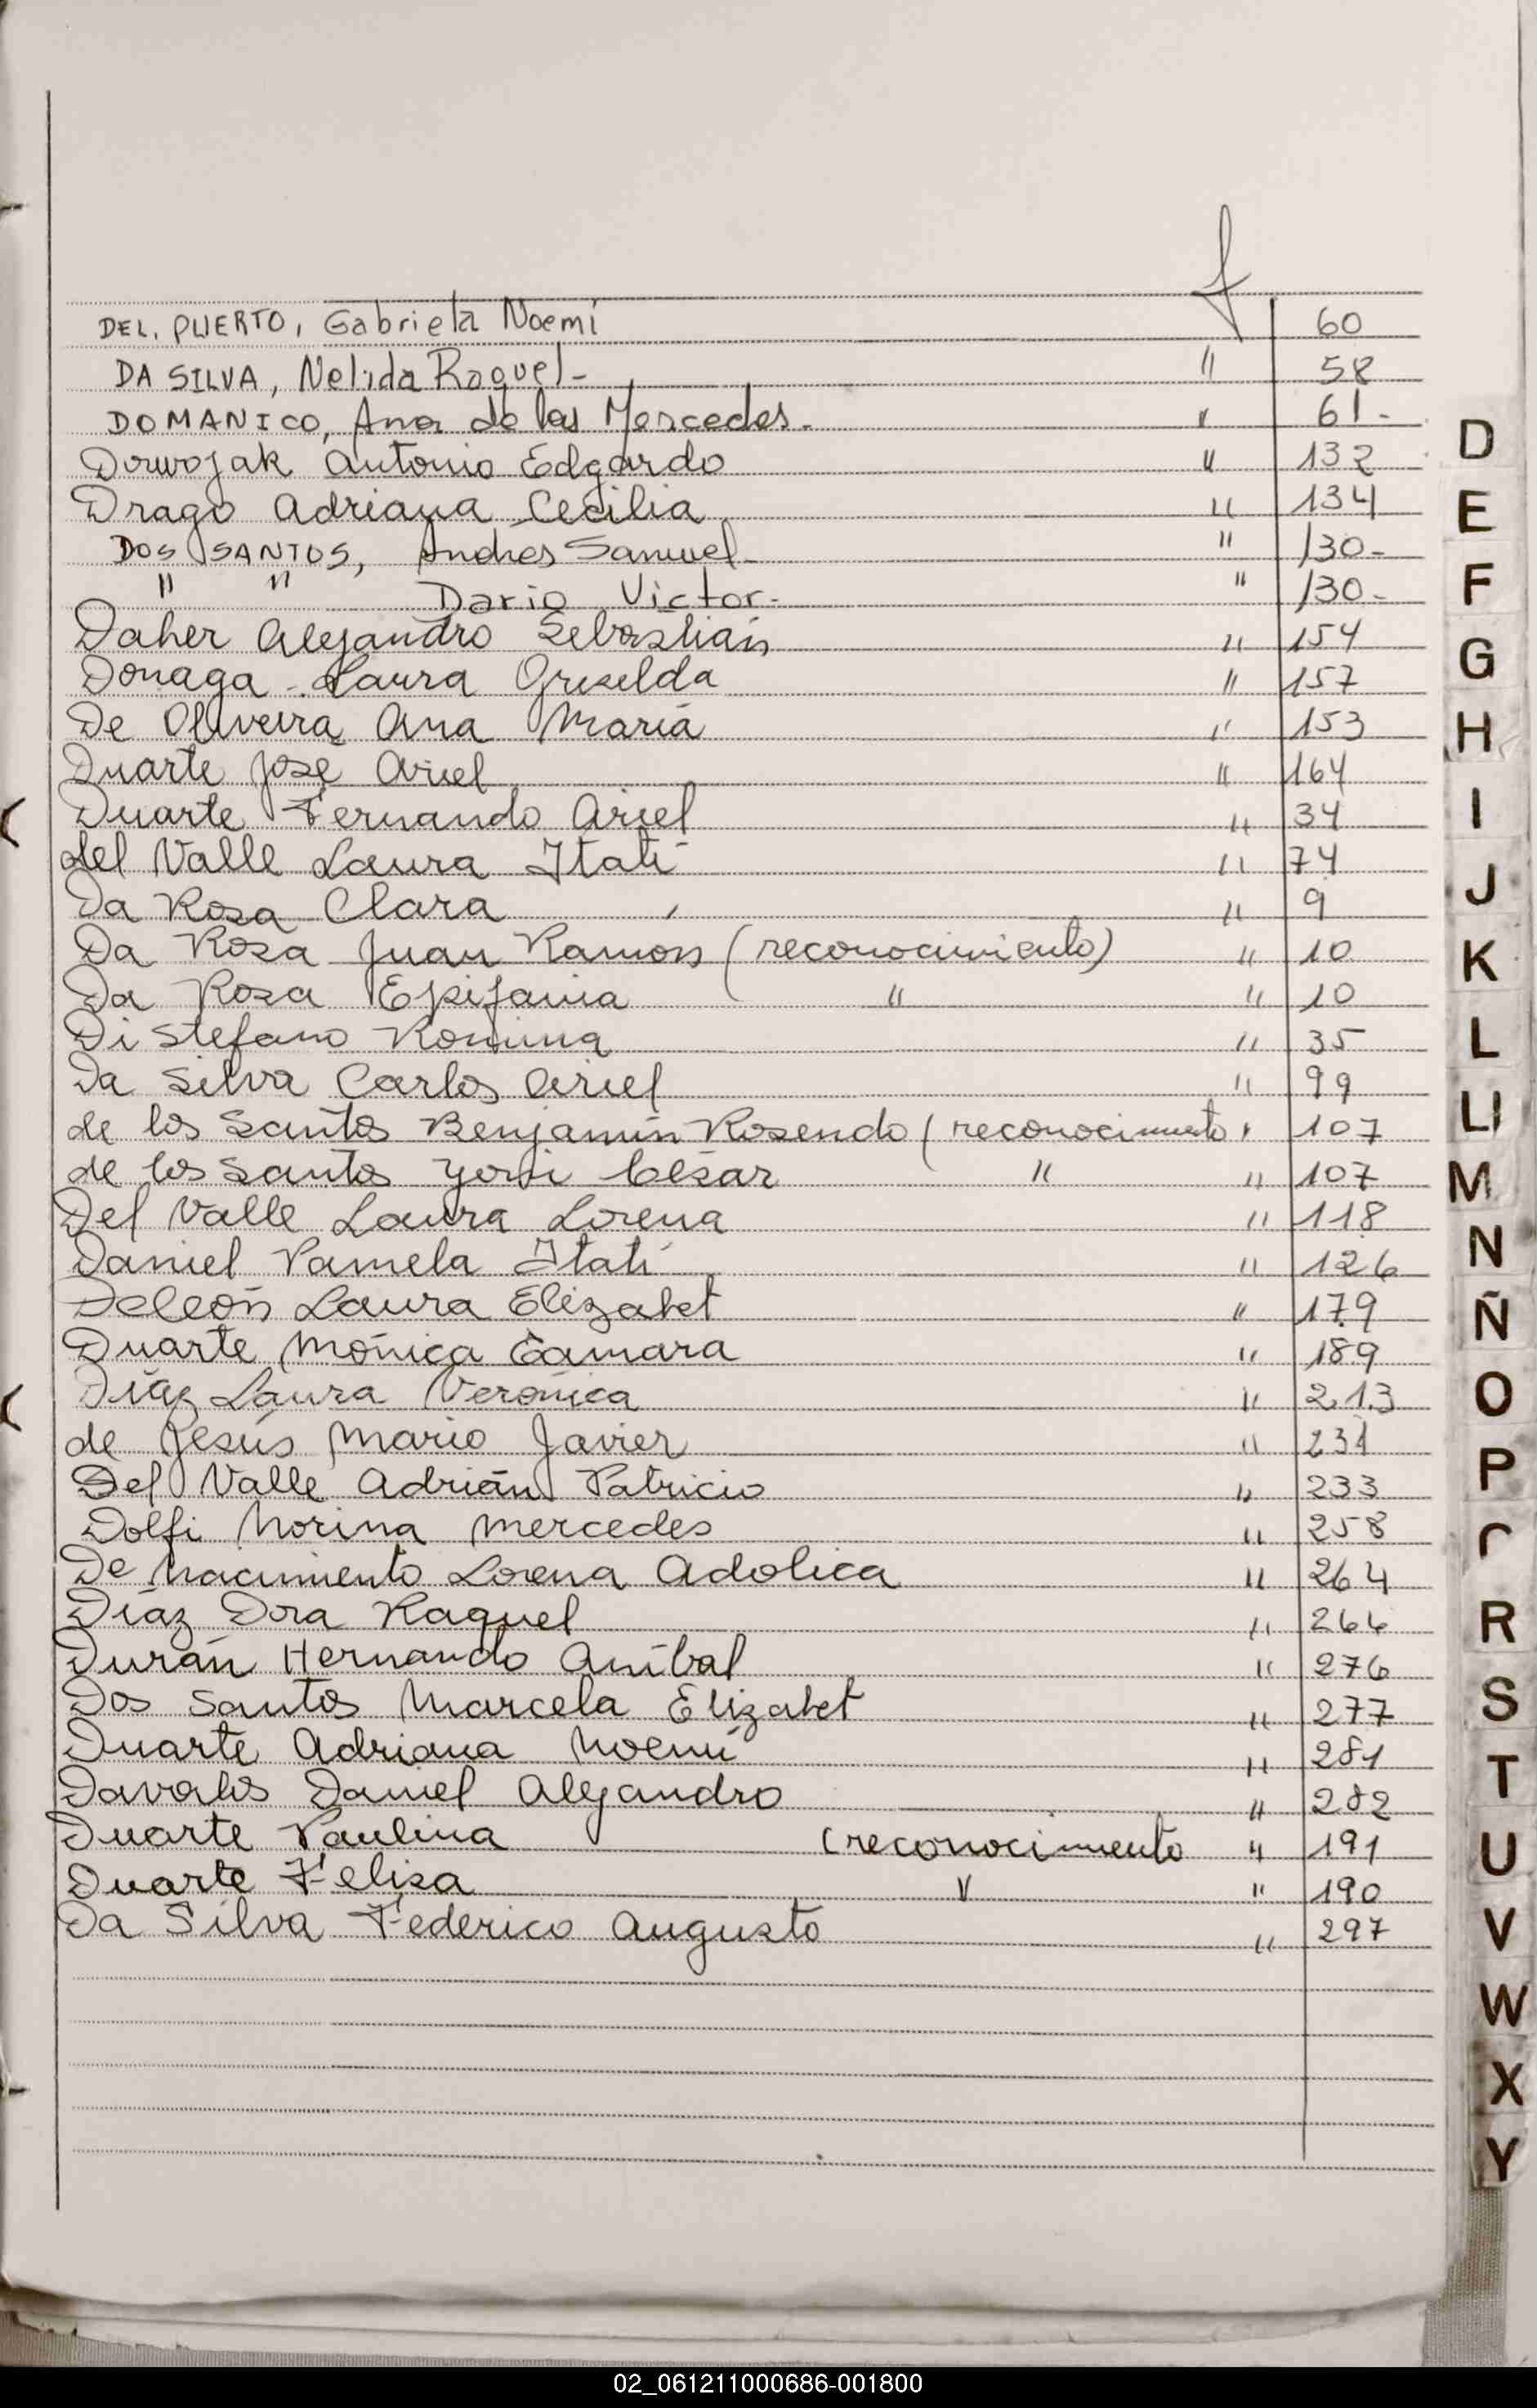 f
DEL PUERTO, Gabriela Noemí 60
DA SILVA, Nelida Raquel - " 58
DOMANICO, Ana de las Mercedes. " 61 -
Antonio Edgardo " 132
Drago Adriana Cecilia " 134
DOS SANTOS, Andres Samuel " 130 -
" " Dario Victor - " 130 -
Daher Alejandro Sebastián " 154
Donaga Laura Griselda " 157
De Oliveira Ana María " 153
Duarte José Ariel " 164
Duarte Fernando Ariel " 34
del Valle Laura Itatí " 74
Da Rosa Clara " 9
Da Rosa Juan Ramón (reconocimiento) " 10
Da Rosa Epifania " " 10
Di Stefano Romina " 35
Da Silva Carlos Ariel " 99
de los Santos Benjamín Rosendo (reconocimiento " 107
de los Santos César " " 107
Del Valle Laura Lorena " 118
Daniel Pamela Itatí " 126
Deleón Laura Elizabet " 179
Duarte Mónica Tamara " 189
Díaz Laura Verónica " 213
de Jesús Mario Javier " 231
Del Valle Adrián Patricio " 233
Dolfi Norina Mercedes " 258
De Nacimiento Lorena Adolica " 264
Díaz Dora Raquel " 266
Durán Hernando Aníbal " 276
Dos Santos Marcela Elizabet " 277
Duarte Adriana Noemí " 281
Davalos Daniel Alejandro " 282
Duarte Paulina (reconocimiento " 191
Duarte Feliza " " 190
Da Silva Federico Augusto " 297
D
E
F
G
H
I
J
K
L
Ll
M
N
Ñ
O
P
R
S
T
U
V
W
X
Y
02_061211000686-001800